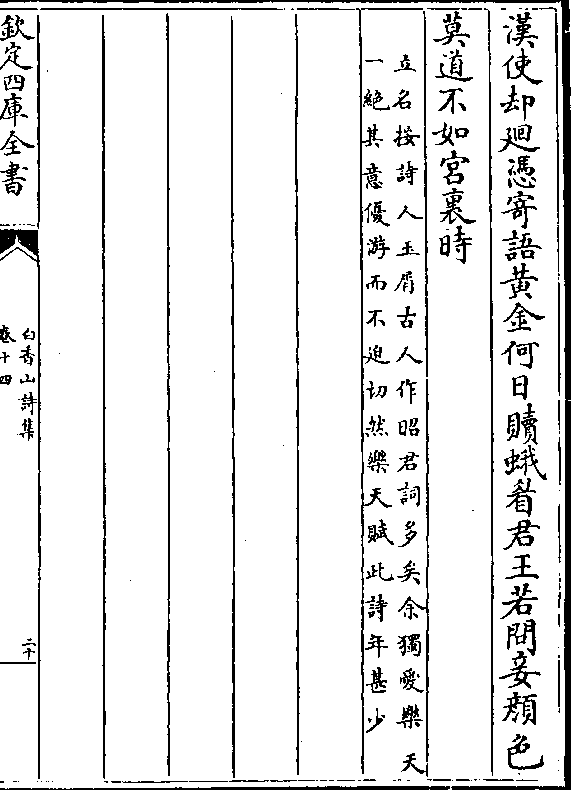 漢使却廻憑寄語黃金何日贖蛾眉君王若問妾顔色
莫道不如宮裏時
立名按詩人玉屑古人作昭君詞多矣余獨愛樂天
一絶其意優游而不迫切然樂天賦此詩年甚少
欽定四庫全書
白香山詩集
卷十四
二十